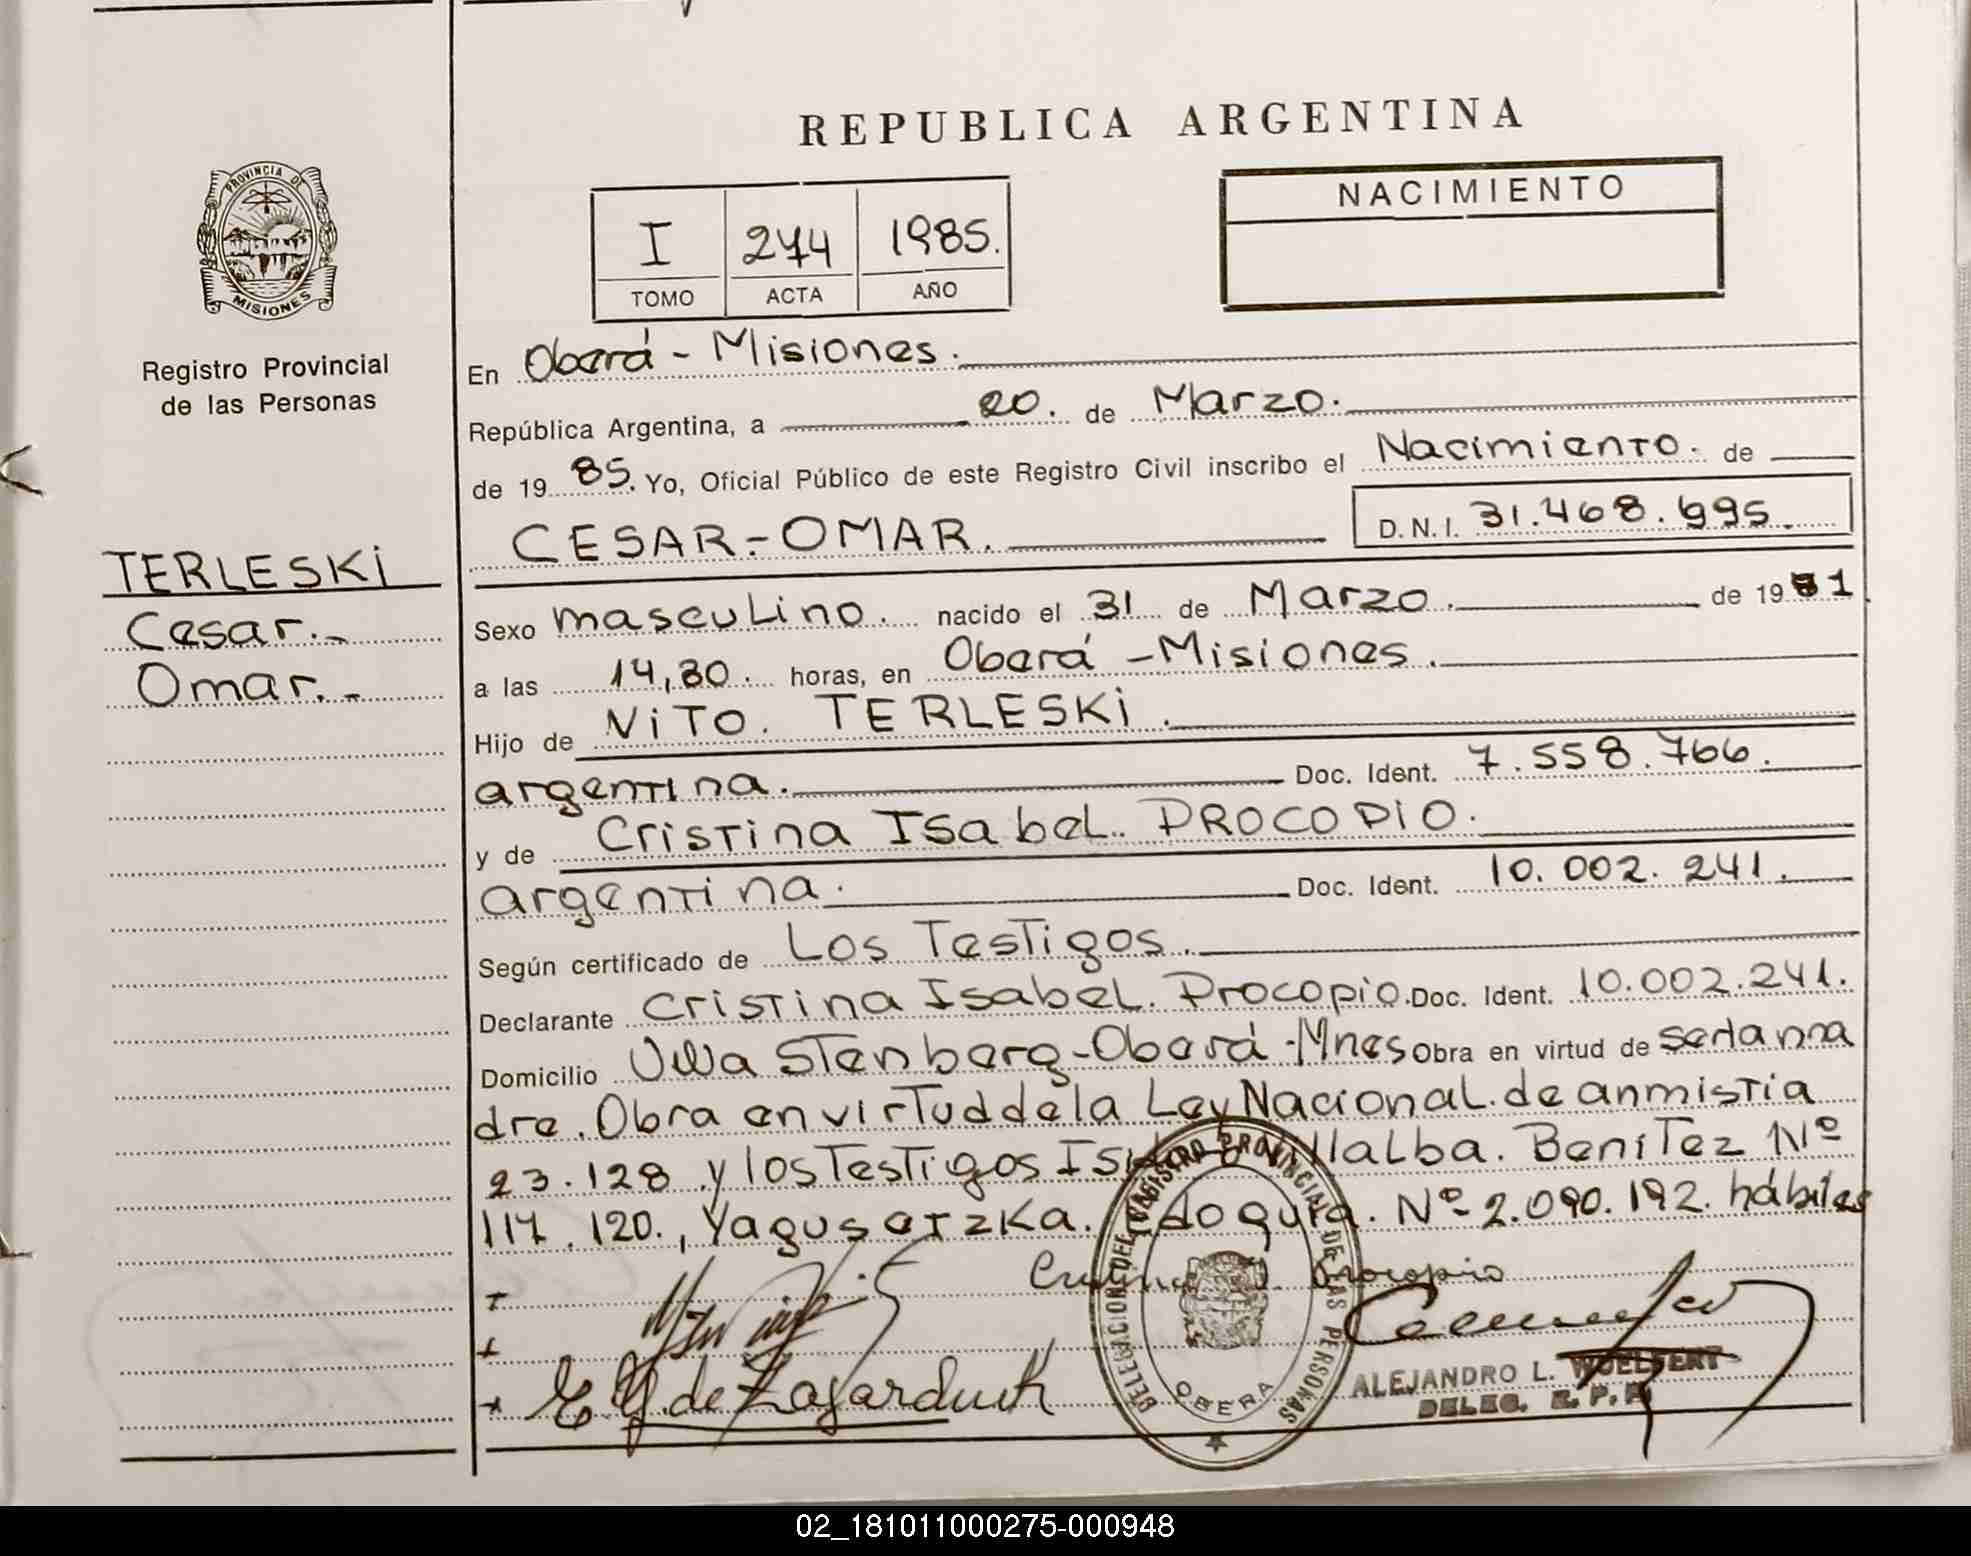 REPUBLICA ARGENTINA
PROVINCIA DE
MISIONES
Registro Provincial
de las Personas
I 274 1985.
TOMO ACTA AÑO
NACIMIENTO
TERLESKI
Cesar.-
Omar.-
En Oberá - Misiones.
República Argentina, a 20. de Marzo.
de 19 85. Yo, Oficial Público de este Registro Civil inscribo el Nacimiento. de
CESAR-OMAR. D.N.I. 31.468.695.
Sexo masculino. nacido el 31 de Marzo. de 19 81
a las 14,30. horas, en Oberá - Misiones.
Hijo de NiTO. TERLESKI.
argentina. Doc. Ident. 7.558.766.
y de Cristina Isabel. PROCOPIO.
argentina. Doc. Ident. 10.002.241.
Según certificado de Los Testigos.
Declarante Cristina Isabel. Procopio. Doc. Ident. 10.002.241.
Domicilio Villa Stenberg-Oberá-Mnes Obra en virtud de ser la ma
dre. Obra en virtud de la Ley Nacional. de anmistia
23.128 y los Testigos Villalba. Benitez Nº
117.120., Nº 2.090.192. hábiles
Procopio
DELEGACION DEL REGISTRO PROVINCIAL DE LAS PERSONAS
OBERA
ALEJANDRO L. WOELFERT
DELEG. R. P. P.
02_181011000275-000948